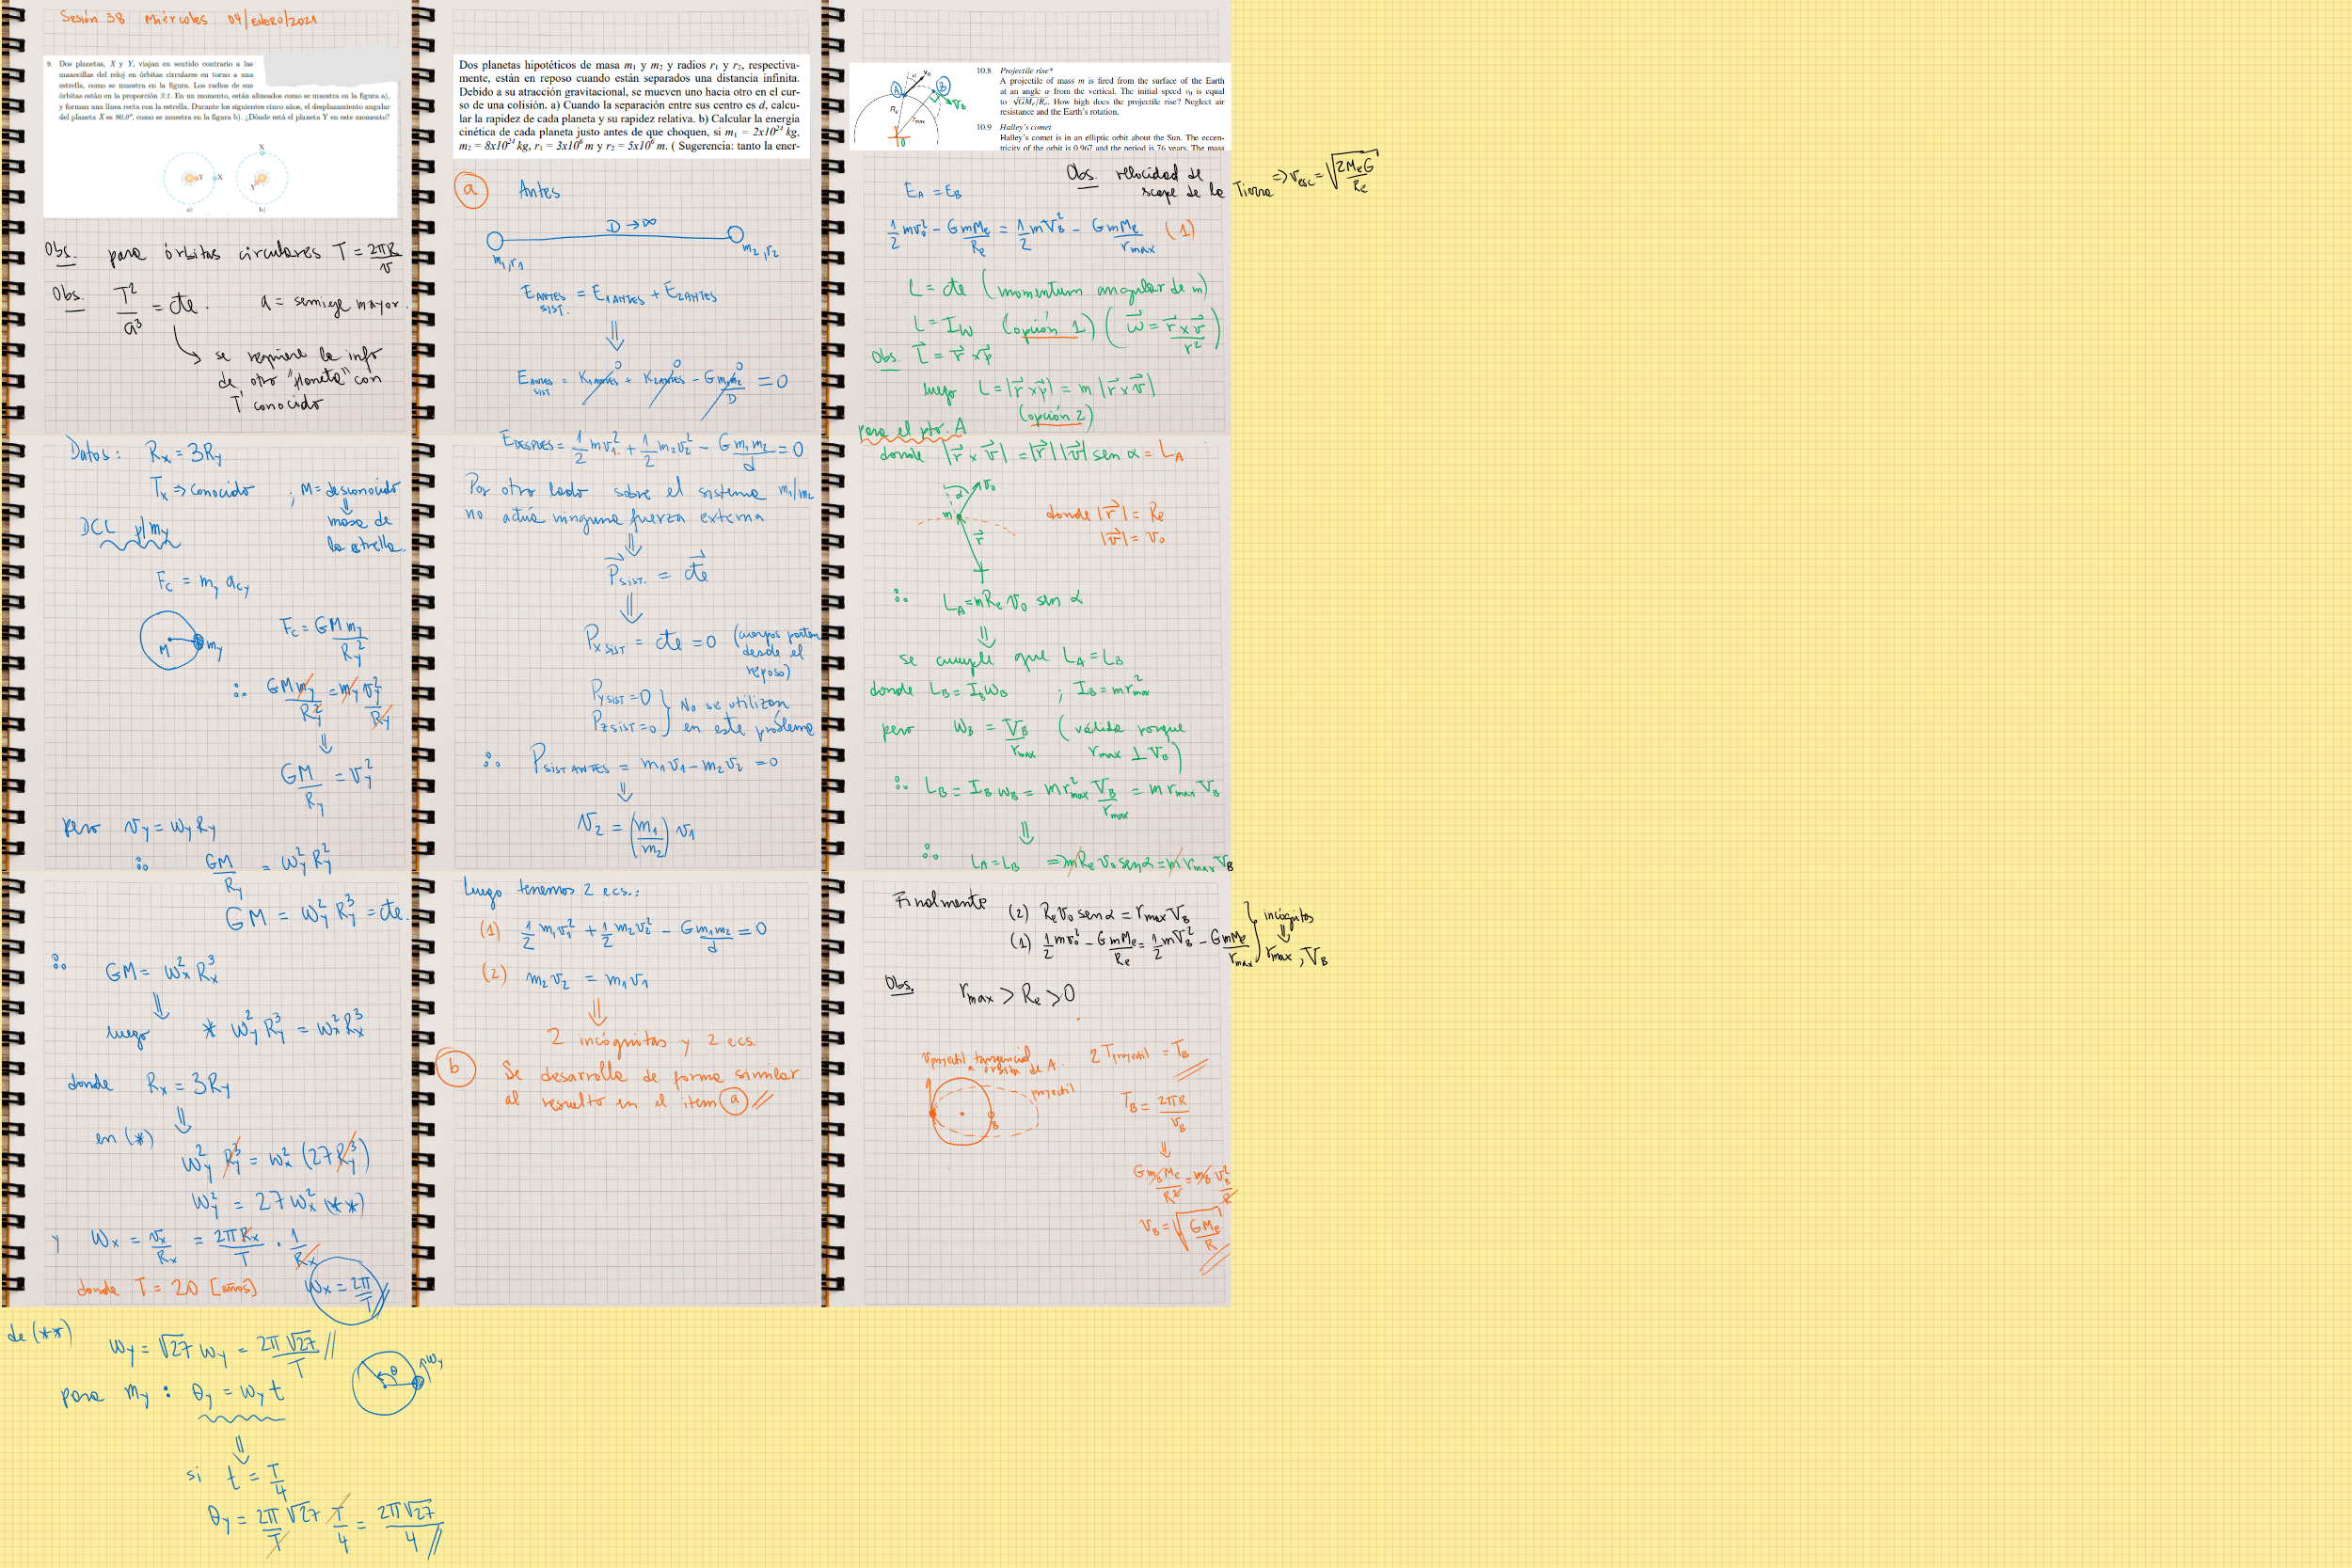 Sesión 38 Miércoles 04/ENERO/2021
9. Dos planetas, X y Y, viajan en sentido contrario a las
manecillas del reloj en órbitas circulares en torno a una
estrella, como se muestra en la figura. Los radios de sus
órbitas están en la proporción 3:1. En un momento, están alineados como se muestra en la figura a),
y forman una línea recta con la estrella. Durante los siguientes cinco años, el desplazamiento angular
del planeta X es 90,0°, como se muestra en la figura b). ¿Dónde está el planeta Y en este momento?
Y X
X
Y
a) b)
Obs. para órbitas circulares T = 2πR/v
Obs. T²/a³ = cte. a = semieje mayor.
se requiere la info
de otro "planeta" con
T conocido
Datos: Rx = 3Ry
Tx ⇒ conocido ; M = desconocido
⇓
masa de
la estrella.
DCL p/my
Fc = my acy
M my
Fc = GMmy/Ry²
∴ GMmy/Ry² = my vy²/Ry
⇓
GM/Ry = vy²
pero vy = wy Ry
∴ GM/Ry = wy² Ry²
GM = wy² Ry³ = cte.
∴ GM = wx² Rx³
⇓
luego * wy² Ry³ = wx² Rx³
donde Rx = 3Ry
⇓
en (*)
wy² Ry³ = wx² (27Ry³)
wy² = 27wx² (**)
y wx = vx/Rx = 2πRx/T · 1/Rx
donde T = 20 [años] wx = 2π/T //
de (**)
wy = √27 wy = 2π√27/T //
para my : θy = wy t
θ wy
⇓
si t = T/4
θy = 2π/T √27 T/4 = 2π√27/4 //
Dos planetas hipotéticos de masa m₁ y m₂ y radios r₁ y r₂, respectiva-
mente, están en reposo cuando están separados una distancia infinita.
Debido a su atracción gravitacional, se mueven uno hacia otro en el cur-
so de una colisión. a) Cuando la separación entre sus centro es d, calcu-
lar la rapidez de cada planeta y su rapidez relativa. b) Calcular la energía
cinética de cada planeta justo antes de que choquen, si m₁ = 2x10²⁴ kg,
m₂ = 8x10²⁴ kg, r₁ = 3x10⁶ m y r₂ = 5x10⁶ m. ( Sugerencia: tanto la ener-
a Antes
D→∞
m₁,r₁ m₂,r₂
E ANTES SIST. = E1ANTES + E2ANTES
⇓
E ANTES SIST = K1ANTES⁰ + K2ANTES⁰ - Gm₁m₂/D⁰ = 0
EDESPUES = 1/2 mv₁² + 1/2 m₂v₂² - Gm₁m₂/d = 0
Por otro lado sobre el sistema m₁/m₂
no actúa ninguna fuerza externa
⇓
P⃗SIST. = c⃗te
⇓
PX SIST = cte = 0 (cuerpos parten
desde el
reposo)
PY SIST = 0
PZ SIST = 0
No se utilizan
en este problema
∴ PSIST ANTES = m₁v₁ - m₂v₂ = 0
⇓
v₂ = (m₁/m₂) v₁
Luego tenemos 2 ecs.:
(1) 1/2 m₁v₁² + 1/2 m₂v₂² - Gm₁m₂/d = 0
(2) m₂v₂ = m₁v₁
⇓
2 incógnitas y 2 ecs.
b Se desarrolla de forma similar
al resuelto en el item a //
10.8 Projectile rise*
A projectile of mass m is fired from the surface of the Earth
at an angle α from the vertical. The initial speed v₀ is equal
to √GMe/Re. How high does the projectile rise? Neglect air
resistance and the Earth's rotation.
10.9 Halley's comet
Halley's comet is in an elliptic orbit about the Sun. The eccen-
tricity of the orbit is 0.967 and the period is 76 years. The mass
A B α v₀ VB Re rmax O
Obs. velocidad de
scape de la Tierra ⇒ vesc = √2MeG/Re
EA = EB
1/2 mv₀² - GmMe/Re = 1/2 mVB² - GmMe/rmax (1)
L = cte (momentum angular de m)
L = Iw (opción 1) (w⃗ = r⃗ x v⃗/r²)
Obs. L⃗ = r⃗ x p⃗
luego L = |r⃗ x p⃗| = m |r⃗ x v⃗|
(opción 2)
para el pto. A
donde |r⃗ x v⃗| = |r⃗| |v⃗| sen α = LA
α v₀
m
r⃗
donde |r⃗| = Re
|v⃗| = v₀
∴ LA = mRe v₀ sen α
⇓
se cumple que LA = LB
donde LB = IBwB ; IB = mrmax²
pero wB = VB/rmax (válida porque
rmax ⊥ VB)
∴ LB = IB wB = mrmax² VB/rmax = m rmax VB
⇓
∴ LA = LB ⇒ mRe v₀ senα = m rmax VB
Finalmente
(2) Re v₀ senα = rmax VB
(1) 1/2 mv₀² - GmMe/Re = 1/2 mVB² - GmMe/rmax
incógnitas
⇓
rmax, VB
Obs. rmax > Re > 0
vproyectil tangencial
a órbita de A.
2 Tproyectil = TB
proyectil
B
TB = 2πR/VB
⇓
GmBMe/R² = mB vB²/R
VB = √GMe/R